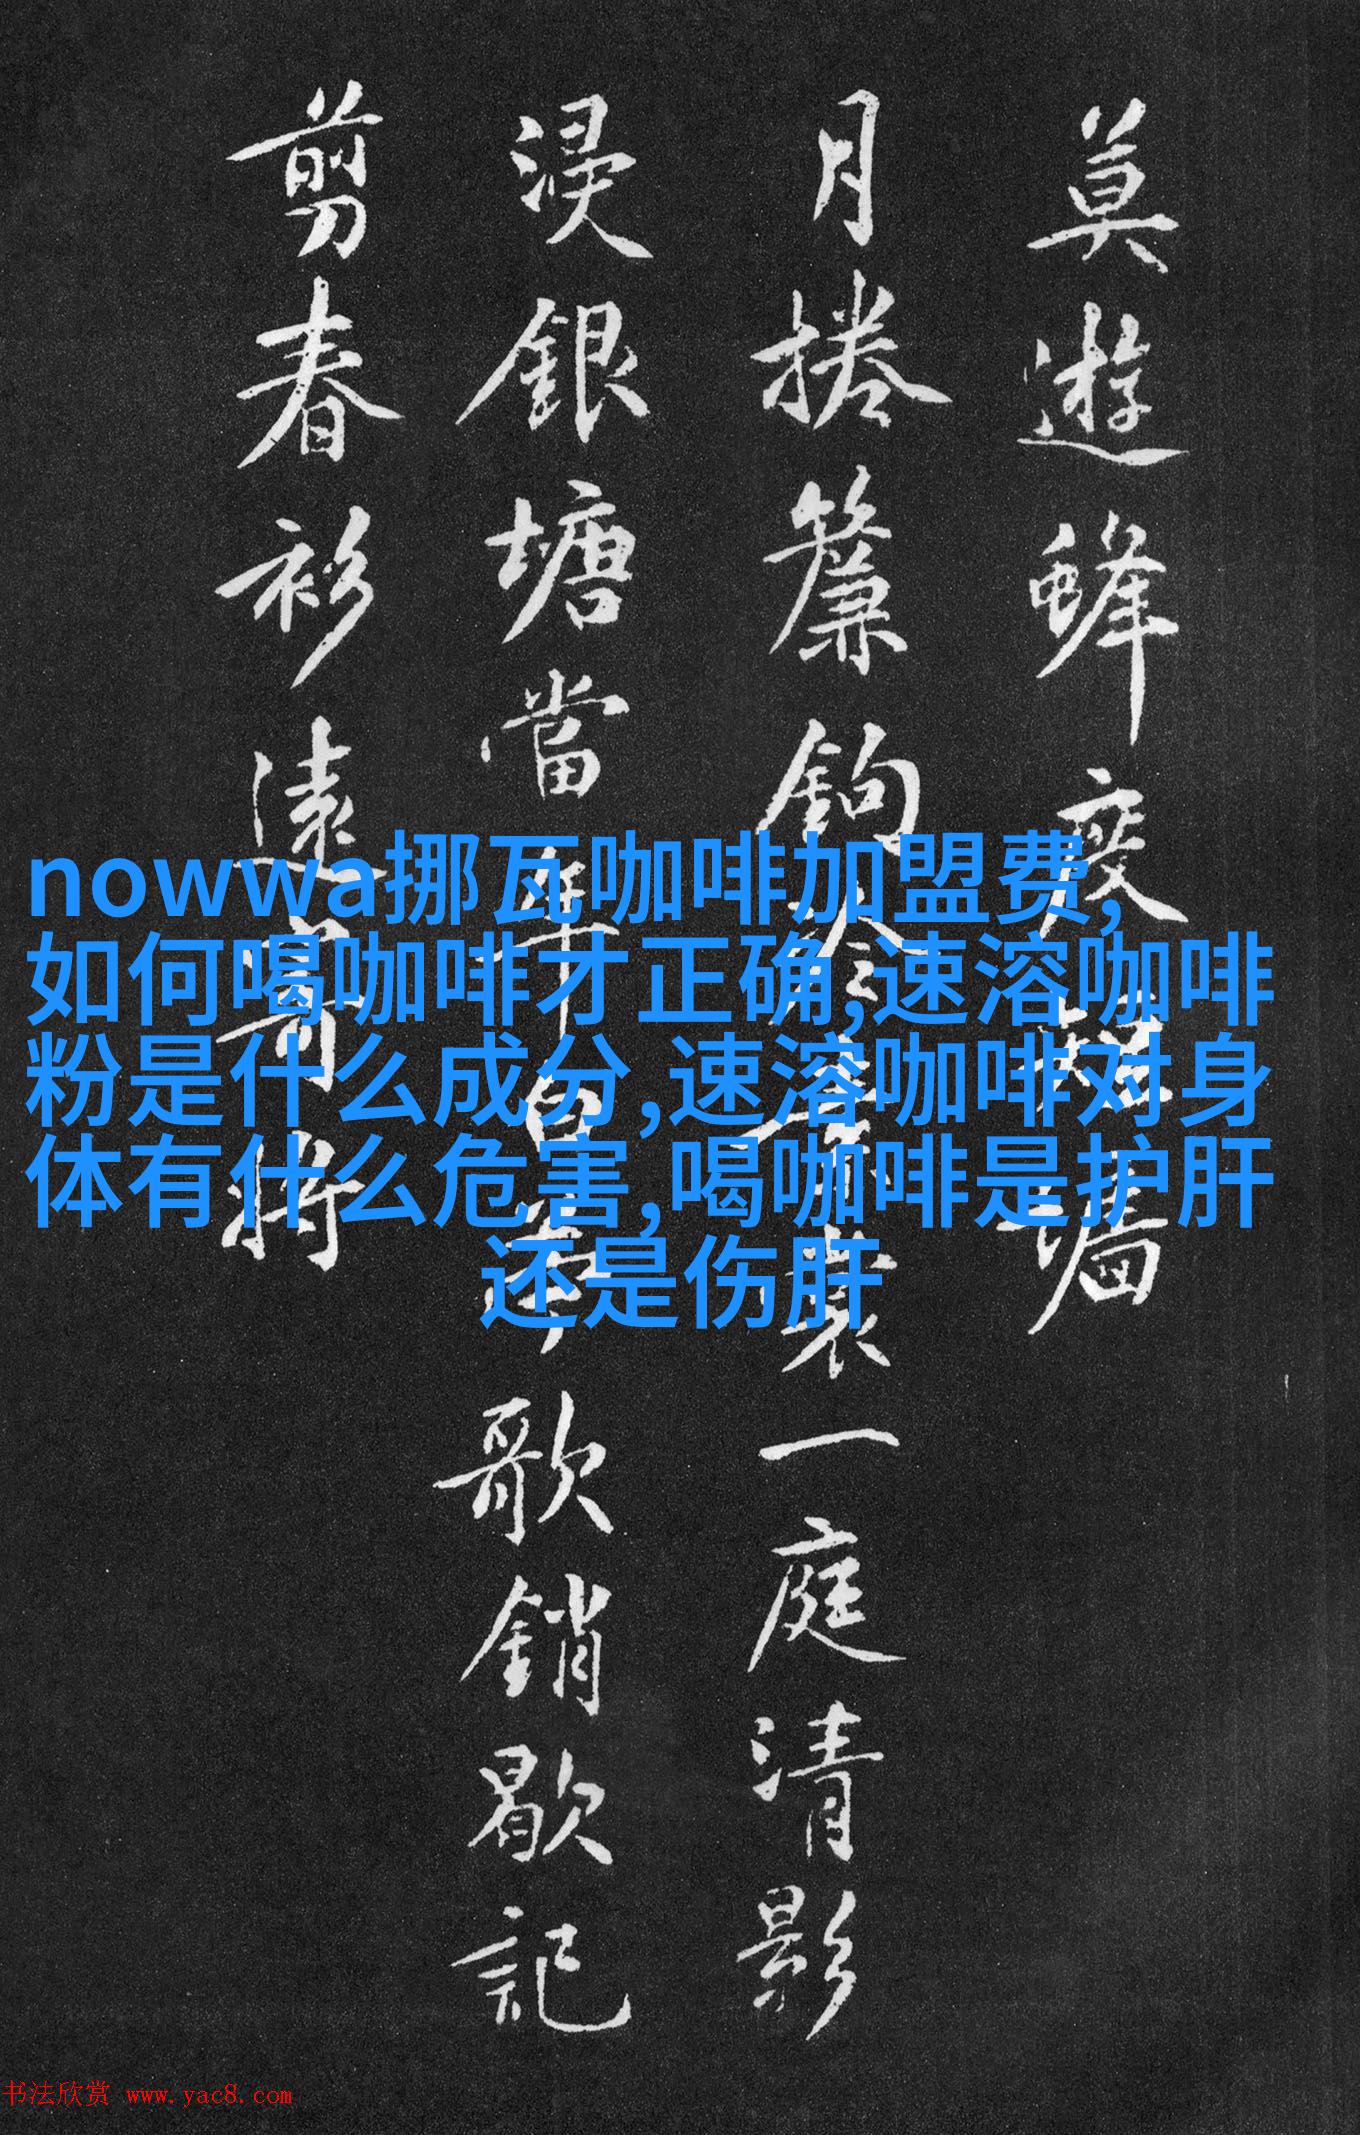 莫遊蜂度短墙
月捲簾鉤 一庭清影
浸銀塘當年白苧歌銷歇記
剪春衫遠寄將
nowwa挪瓦咖啡加盟费,
如何喝咖啡才正确,速溶咖啡
粉是什么成分,速溶咖啡对身
体有什么危害,喝咖啡是护肝
还是伤肝
书法欣赏 www.yac8.com